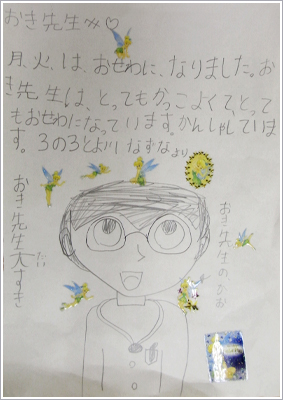 おき先生へ♡
月、火、は、おせわに、なりました。お
き先生は、とってもかっこよくて、とって
もおせわになっています。かんしゃしていま
す。3の3とよ川 なずなより
おき先生大すき
おき先生のかお